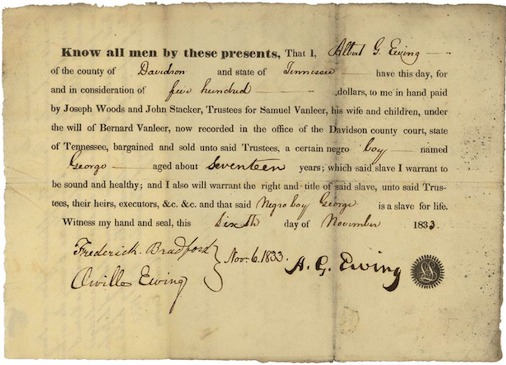 Know all men by these presents, That I, Albert G. Ewing
of the county of Davidson and state of Tennessee have this day, for
and in consideration of five hundred dollars, to me in hand paid
by Joseph Woods and John Stacker, Trustees for Samuel Vanleer, his wife and children, under
the will of Bernard Vanleer, now recorded in the office of the Davidson county court, state
of Tennessee, bargained and sold unto said Trustees, a certain negro boy named
George aged about Seventeen years; which said slave I warrant to
be sound and healthy; and I also will warrant the right and title of said slave, unto said Trus-
tees, their heirs, executors, &c. &c. and that said Negro boy George is a slave for life.
Witness my hand and seal, this Sixth day of November 1833
Frederick Bradford
Orville Ewing
Nov. 6. 1833.
A. G. Ewing